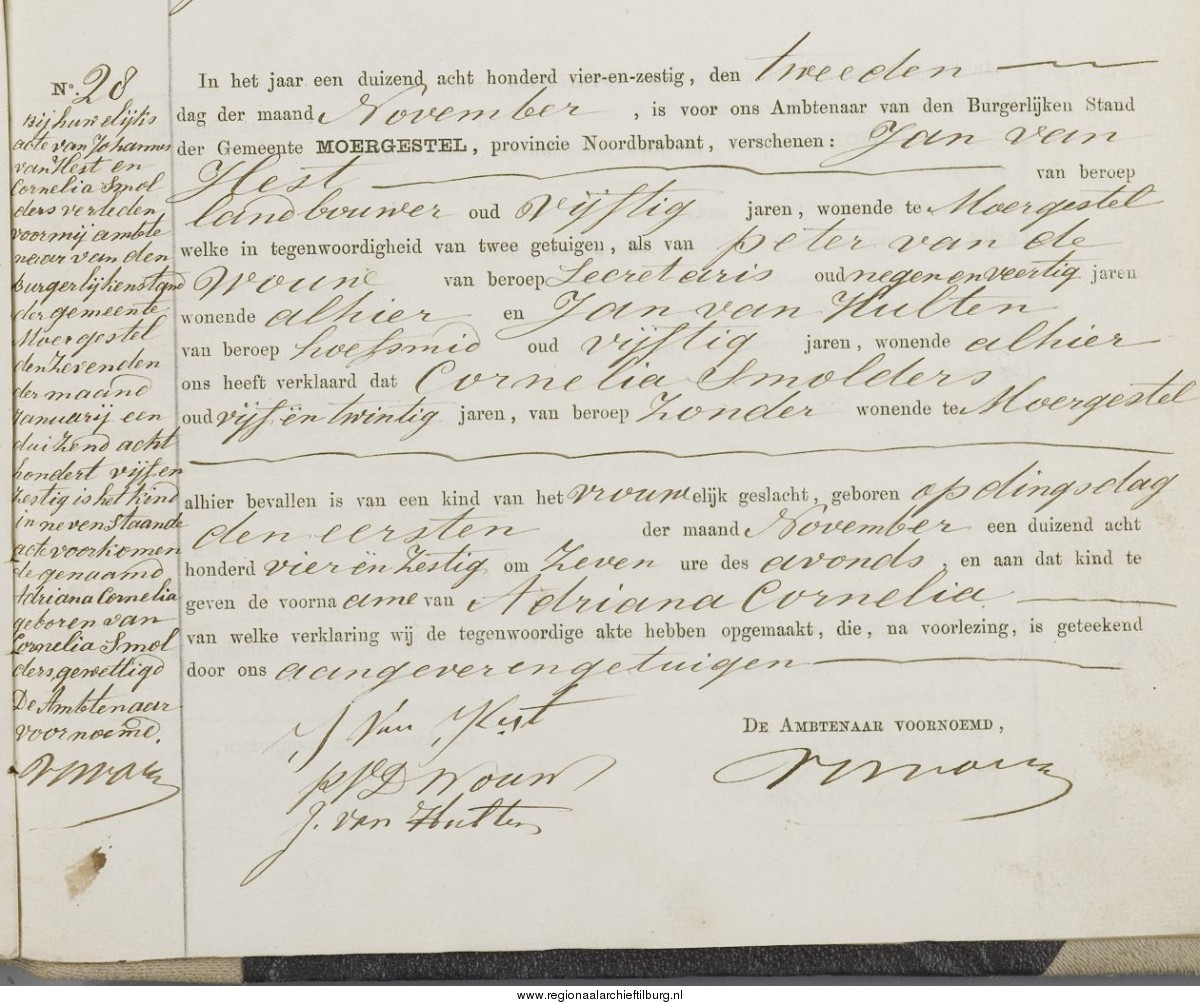 No. 28
Bij huwelijks
acte van Johannes
van Hest en
Cornelia Smol
ders verleden
voor mij ambte
naar van den
burgerlijkenstand
der gemeente
Moergestel
den Zevenden
der maand
Januarij een
duizend acht
hondert vijf en
Zestig is het kind
in nevenstaande
acte voorkomen
de genaamd
Adriana Cornelia
geboren van
Cornelia Smol
ders, gewettigd
De Ambtenaar
voornoemd.
In het jaar een duizend acht honderd vier-en-zestig, den tweeden
dag der maand November, is voor ons Ambtenaar van den Burgerlijken Stand
der Gemeente MOERGESTEL, provincie Noordbrabant, verschenen: Jan van
Hest van beroep
landbouwer oud Vijftig jaren, wonende te Moergestel
welke in tegenwoordigheid van twee getuigen, als van peter van de
Wouw van beroep Secretaris oud negen en veertig jaren
wonende alhier en Jan van Hulten
van beroep hoefsmid oud vijftig jaren, wonende alhier
ons heeft verklaard dat Cornelia Smolders
oud vijf en twintig jaren, van beroep Zonder wonende te Moergestel
alhier bevallen is van een kind van het vrouwelijk geslacht, geboren op dingsdag
den eersten der maand November een duizend acht
honderd vier en Zestig om Zeven ure des avonds, en aan dat kind te
geven de voorna ame van Adriana Cornelia
van welke verklaring wij de tegenwoordige akte hebben opgemaakt, die, na voorlezing, is geteekend
door ons aangever en getuigen
J Van Hest
DE AMBTENAAR VOORNOEMD,
P V D Wouw
J. van Hulten
www.regionaalarchieftilburg.nl